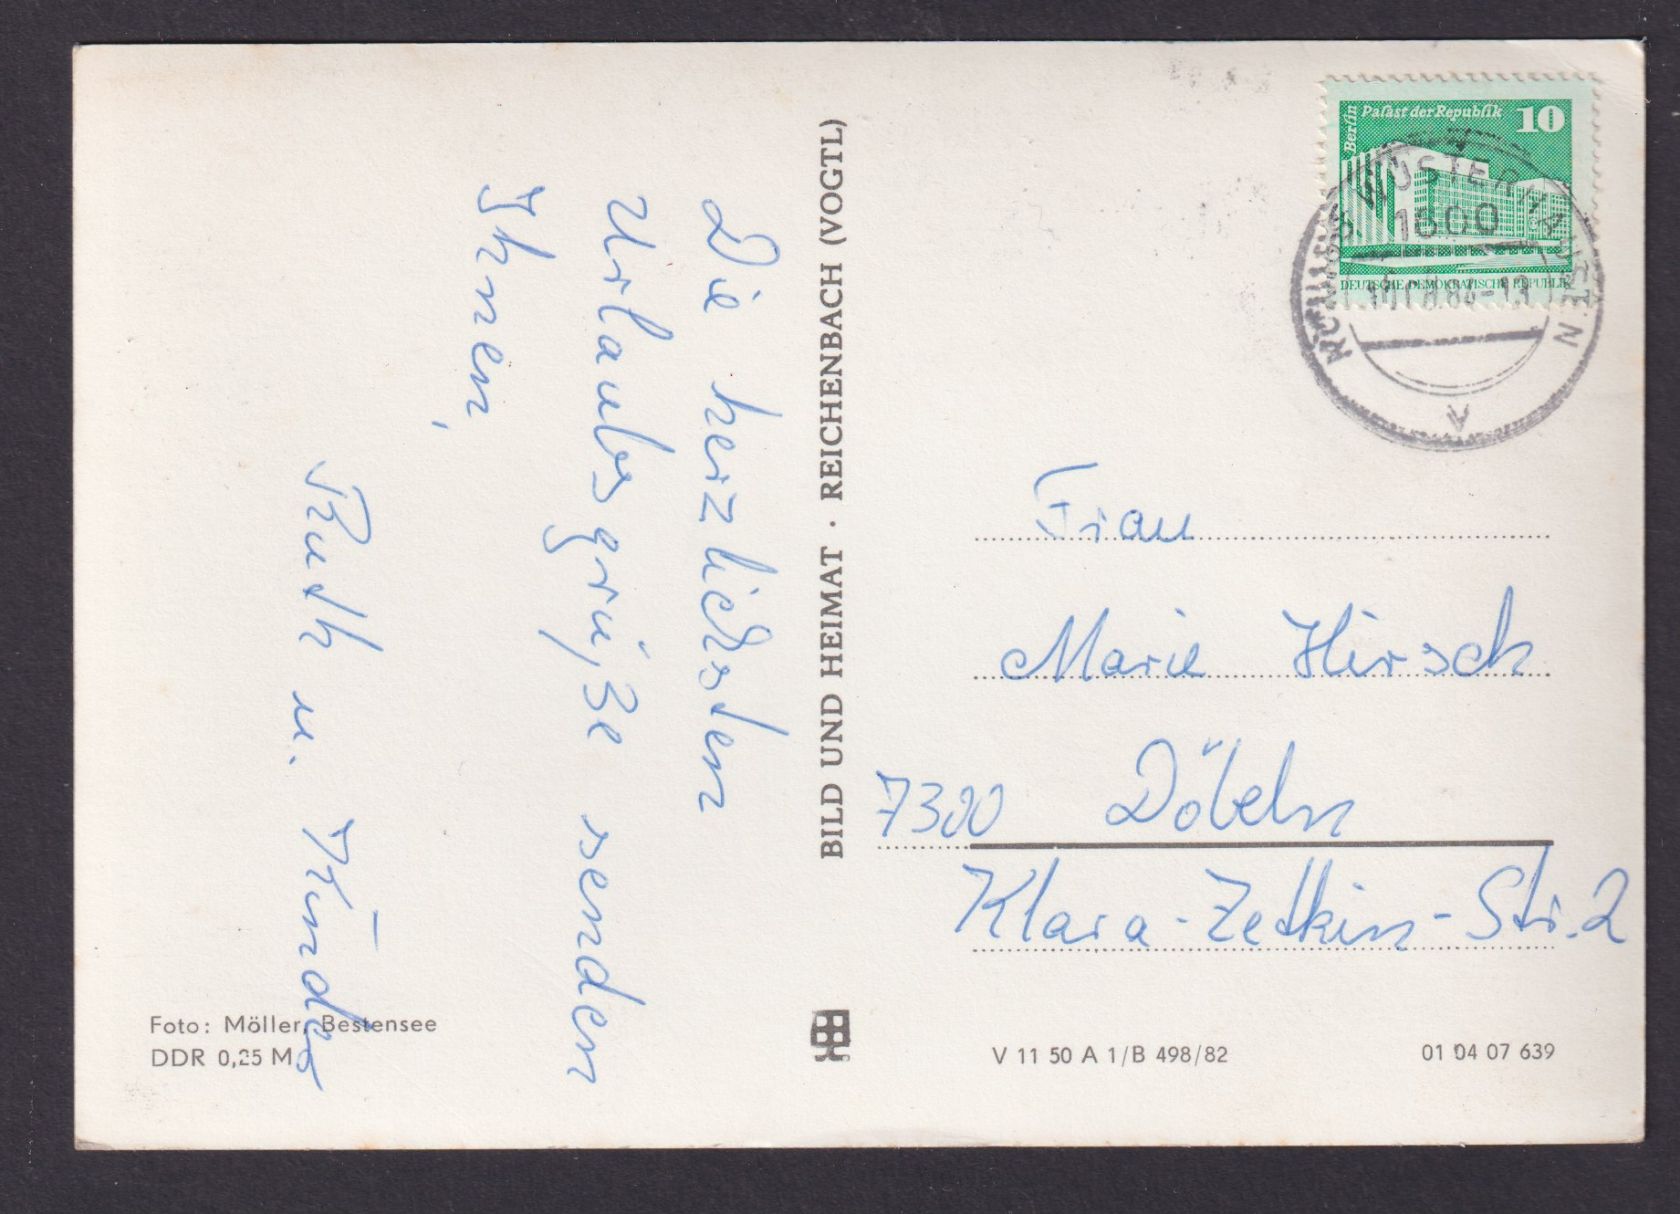 Die herzlichsten
Urlaubsgrüße senden
Ihnen,
Ruth u. Kinder
Foto: Möller, Bestensee
DDR 0,25 M
BILD UND HEIMAT · REICHENBACH (VOGTL)
Berlin
Palast der Republik
10
DEUTSCHE DEMOKRATISCHE REPUBLIK
WUSTERHAUSEN
1600
Frau
Marie Hirsch
7300 Döbeln
Klara-Zetkin-Str. 2
V 11 50 A 1/B 498/82
01 04 07 639